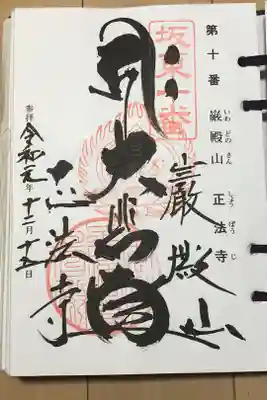 第十番 巌殿山 正法寺
いわ どの さん しょう ぼう じ
坂東十番
巖殿山
大悲
正法寺
参拝 令和元年十二月十五日